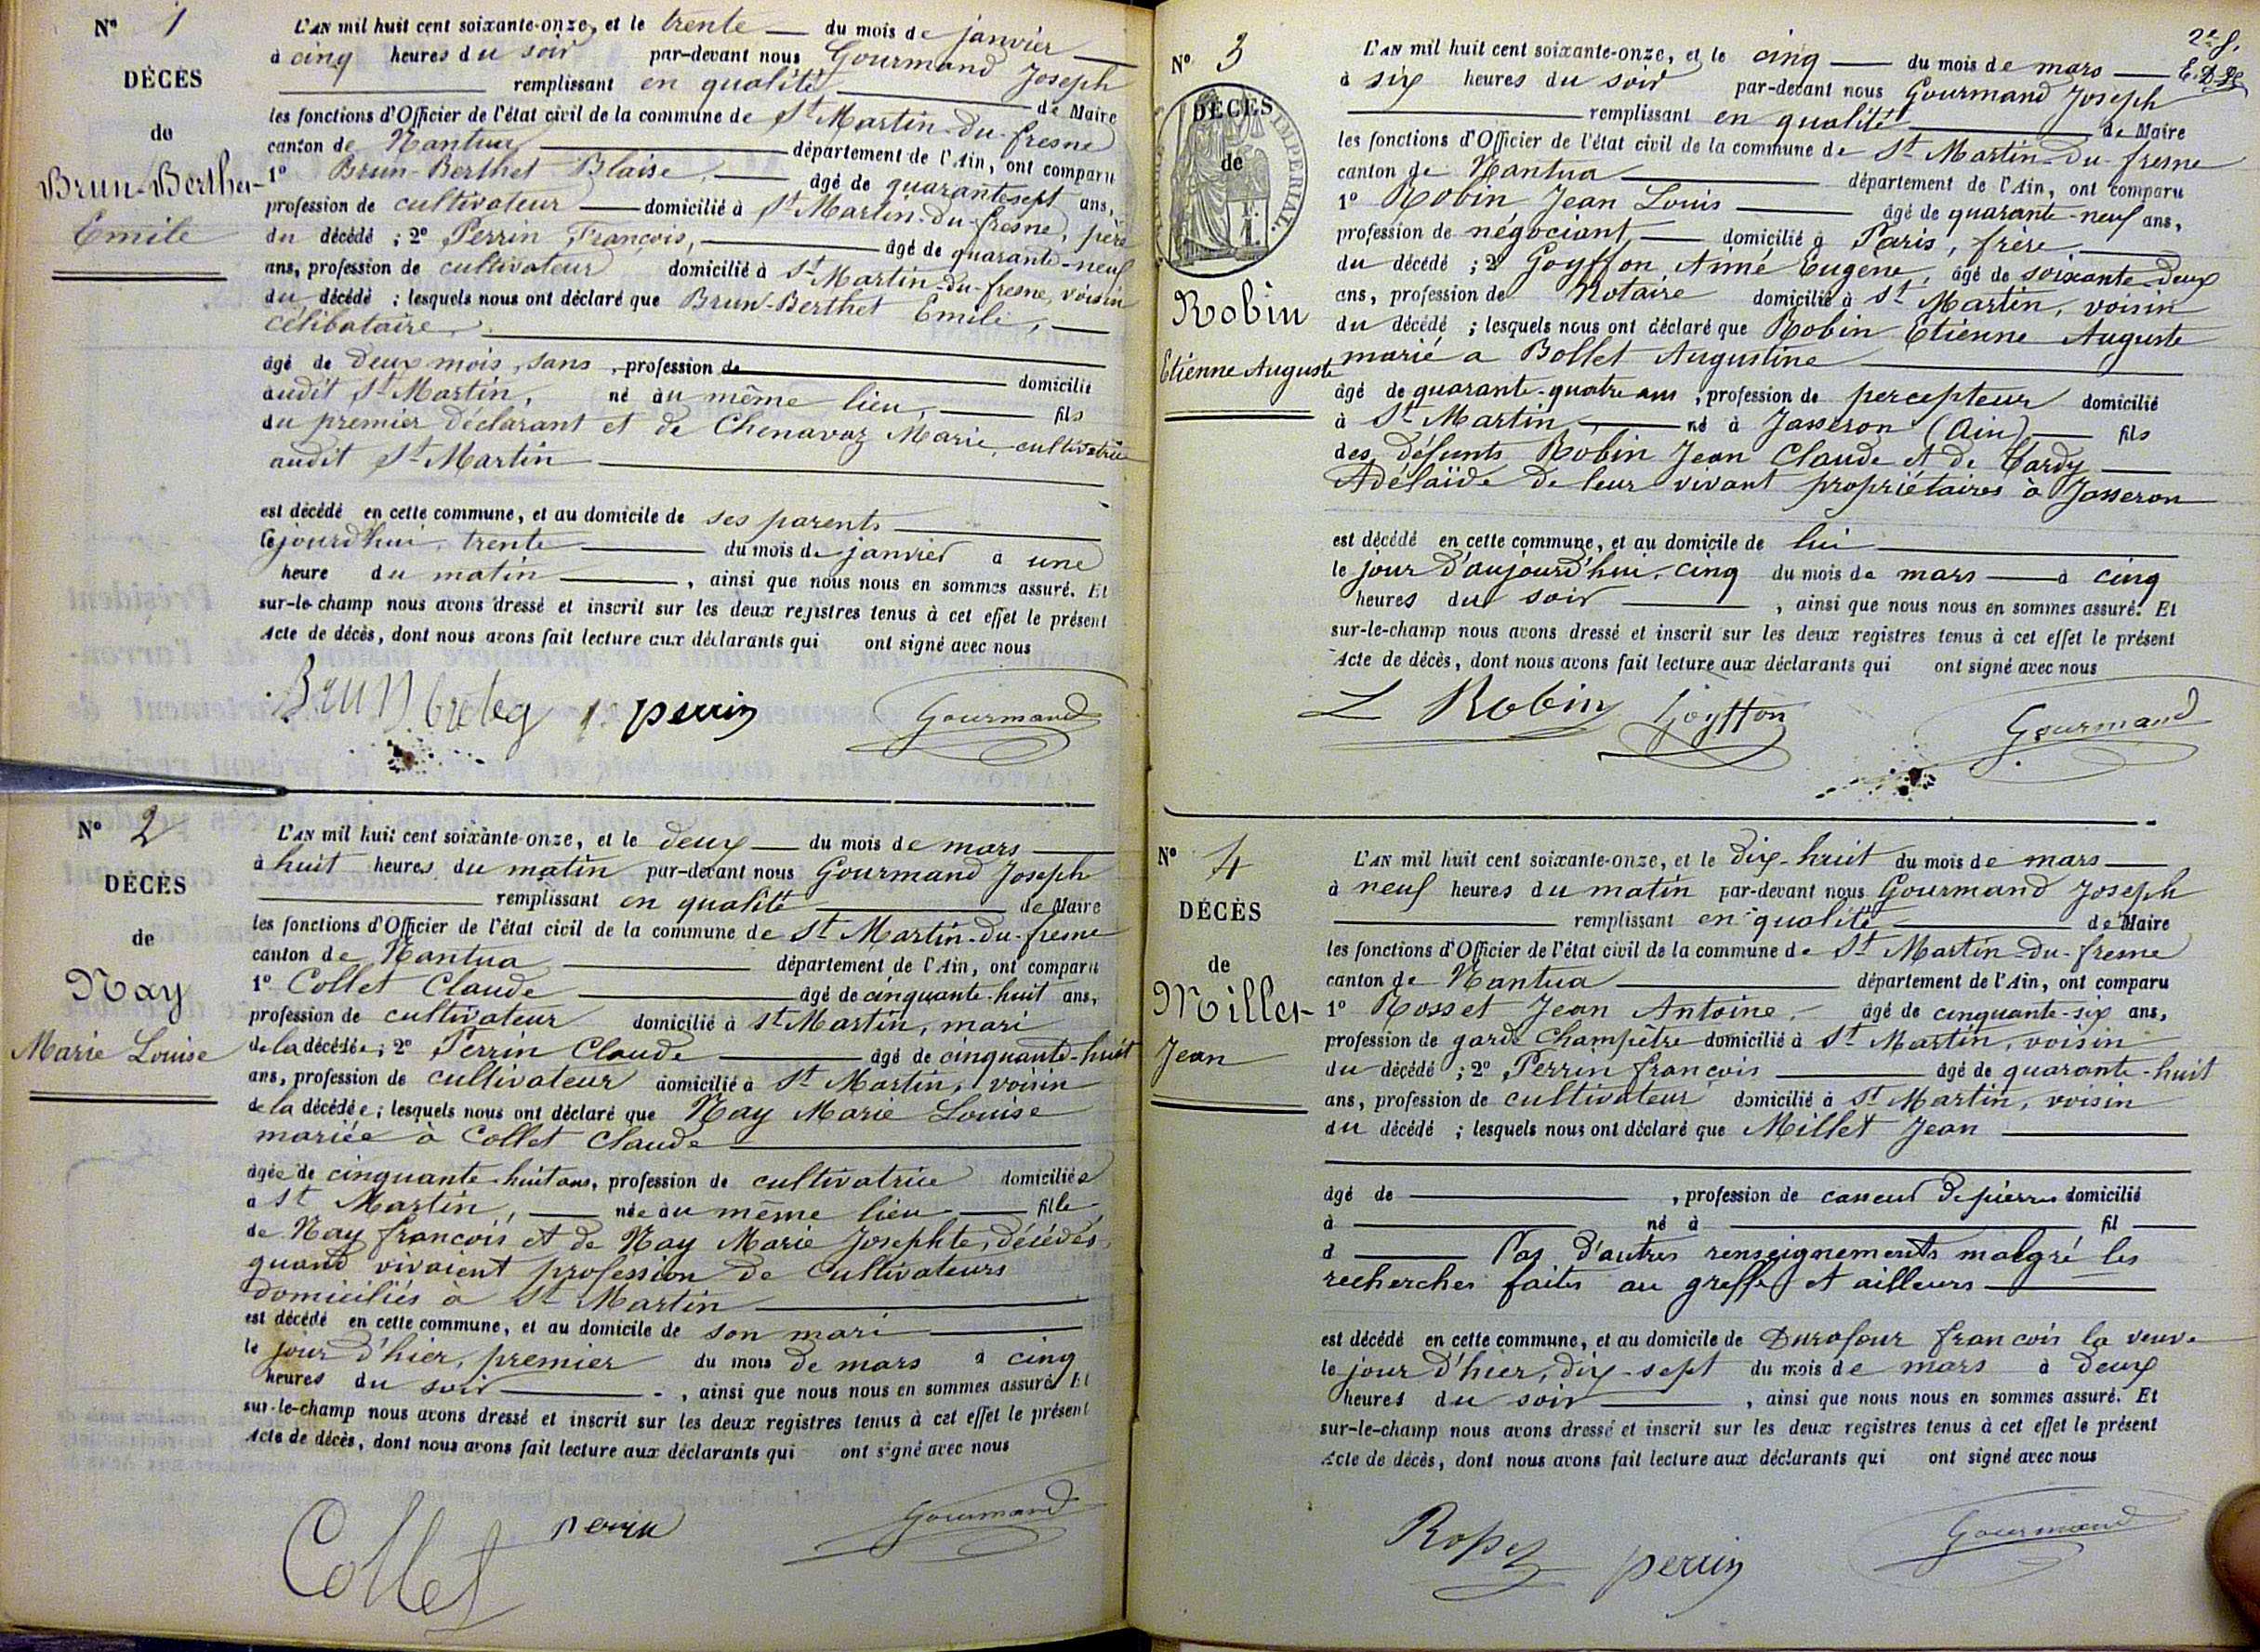 N° 1
DÉCÈS
de
Brun-Berthet
Emile
L'AN mil huit cent soixante-onze, et le trente du mois de janvier
à cinq heures du soir par-devant nous Gourmand Joseph
remplissant en qualité de Maire
les fonctions d'Officier de l'état civil de la commune de St Martin-du-fresne
canton de Nantua département de l'Ain, ont comparu
1° Brun-Berthet Blaise, âgé de quarante sept ans,
profession de cultivateur domicilié à St Martin-du-fresne, père
du décédé ; 2° Perrin François, âgé de quarante-neuf
ans, profession de cultivateur domicilié à St Martin-du-fresne, voisin
du décédé ; lesquels nous ont déclaré que Brun-Berthet Emile,
célibataire
âgé de deux mois, sans profession de domicilié
audit St Martin, né au même lieu, fils
du premier déclarant et de Chenavaz Marie, cultivatrice
audit St Martin
est décédé en cette commune, et au domicile de ses parents
le jourd'hui, trente du mois de janvier à une
heure du matin, ainsi que nous nous en sommes assuré. Et
sur-le-champ nous avons dressé et inscrit sur les deux registres tenus à cet effet le présent
Acte de décès, dont nous avons fait lecture aux déclarants qui ont signé avec nous
perrin Gourmand
N° 2
DÉCÈS
de
Nay
Marie Louise
L'AN mil huit cent soixante-onze, et le deux du mois de mars
à huit heures du matin par-devant nous Gourmand Joseph
remplissant en qualité de Maire
les fonctions d'Officier de l'état civil de la commune de St Martin-du-fresne
canton de Nantua département de l'Ain, ont comparu
1° Collet Claude âgé de cinquante-huit ans,
profession de cultivateur domicilié à St Martin, mari
de la décédée ; 2° Perrin Claude âgé de cinquante-huit
ans, profession de cultivateur domicilié à St Martin, voisin
de la décédée ; lesquels nous ont déclaré que Nay Marie Louise
mariée à Collet Claude
âgée de cinquante-huit ans, profession de cultivatrice domiciliée
à St Martin, née au même lieu fille
de Nay françois et de Nay Marie Josephte, décédés,
quand vivaient profession de cultivateurs
domiciliés à St Martin
est décédé en cette commune, et au domicile de son mari
le jour d'hier, premier du mois de mars à cinq
heures du soir, ainsi que nous nous en sommes assuré. Et
sur-le-champ nous avons dressé et inscrit sur les deux registres tenus à cet effet le présent
Acte de décès, dont nous avons fait lecture aux déclarants qui ont signé avec nous
Collet perrin Gourmand
2e f.
N° 3
DÉCÈS
de
IMPÉRIAL.
Robin
Etienne Auguste
L'AN mil huit cent soixante-onze, et le cinq du mois de mars
à six heures du soir par-devant nous Gourmand Joseph
remplissant en qualité de Maire
les fonctions d'Officier de l'état civil de la commune de St Martin-du-fresne
canton de Nantua département de l'Ain, ont comparu
1° Robin Jean Louis âgé de quarante-neuf ans,
profession de négociant domicilié à Paris, frère
du décédé ; 2° Goyffon Aimé Eugène, âgé de soixante-deux
ans, profession de Notaire domicilié à St Martin, voisin
du décédé ; lesquels nous ont déclaré que Robin Etienne Auguste
marié a Bollet Augustine
âgé de quarante-quatre ans, profession de percepteur domicilié
à St Martin né à Jasseron (Ain) fils
des défunts Robin Jean Claude et de Tardy
Adélaïde de leur vivant propriétaires à Jasseron
est décédé en cette commune, et au domicile de lui
le jour d'aujourd'hui, cinq du mois de mars à cinq
heures du soir, ainsi que nous nous en sommes assuré. Et
sur-le-champ nous avons dressé et inscrit sur les deux registres tenus à cet effet le présent
Acte de décès, dont nous avons fait lecture aux déclarants qui ont signé avec nous
L Robin Goyffon Gourmand
N° 4
DÉCÈS
de
Millet
Jean
L'AN mil huit cent soixante-onze, et le dix-huit du mois de mars
à neuf heures du matin par-devant nous Gourmand Joseph
remplissant en qualité de Maire
les fonctions d'Officier de l'état civil de la commune de St Martin-du-fresne
canton de Nantua département de l'Ain, ont comparu
1° Rosset Jean Antoine, âgé de cinquante-six ans,
profession de garde Champêtre domicilié à St Martin, voisin
du décédé ; 2° Perrin françois âgé de quarante-huit
ans, profession de cultivateur domicilié à St Martin, voisin
du décédé ; lesquels nous ont déclaré que Millet Jean
âgé de , profession de casseur de pierres domicilié
à né à fil
d Pas d'autres renseignements malgré les
recherches faites au greffe et ailleurs
est décédé en cette commune, et au domicile de Durafour francois la veuve
le jour d'hier, dix-sept du mois de mars à deux
heures du soir, ainsi que nous nous en sommes assuré. Et
sur-le-champ nous avons dressé et inscrit sur les deux registres tenus à cet effet le présent
Acte de décès, dont nous avons fait lecture aux déclarants qui ont signé avec nous
Rosset perrin Gourmand